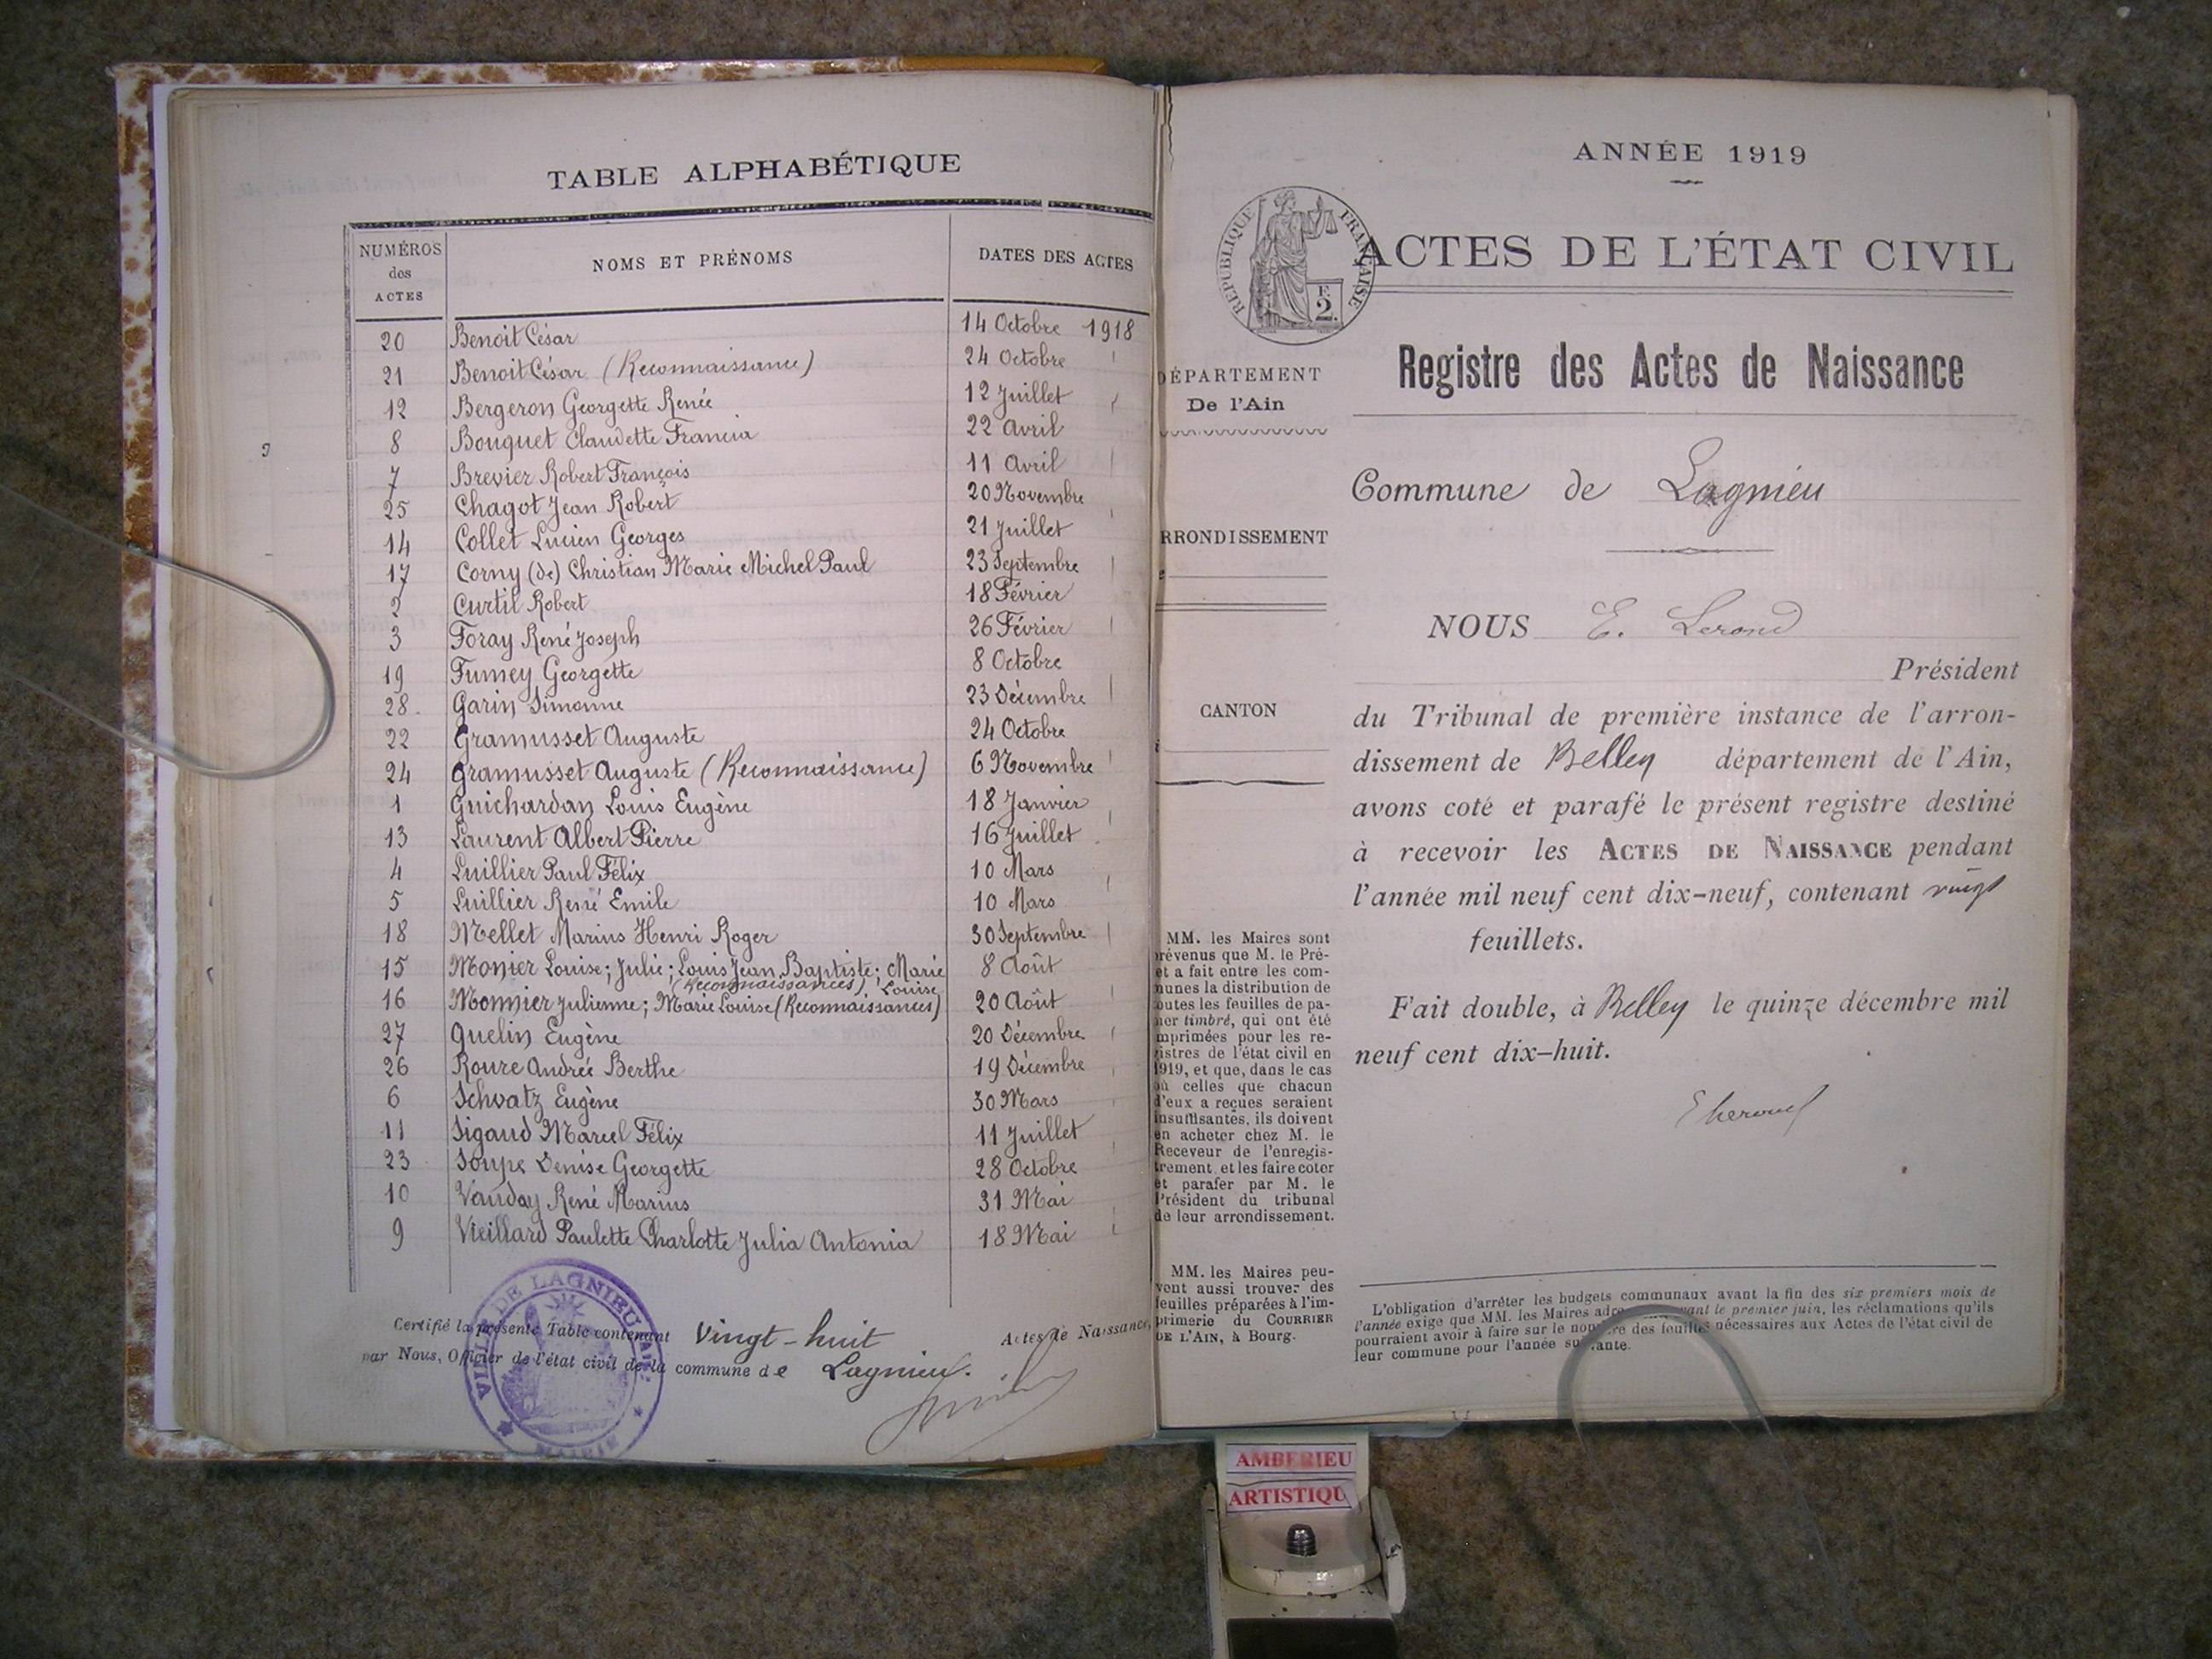 TABLE ALPHABÉTIQUE
NUMÉROS des ACTES NOMS ET PRÉNOMS DATES DES ACTES
20 Benoit César 14 Octobre 1918
21 Benoit César (Reconnaissance) 24 Octobre
12 Bergeron Georgette Renée 12 Juillet
8 Bouquet Claudette Francia 22 Avril
7 Brevier Robert François 11 Avril
25 Chagot Jean Robert 20 Novembre
14 Collet Lucien Georges 21 Juillet
17 Corny (de) Christian Marie Michel Paul 23 Septembre
2 Curtil Robert 18 Février
3 Foray René Joseph 26 Février
19 Fumey Georgette 8 Octobre
28 Garin Simonne 23 Décembre
22 Gramusset Auguste 24 Octobre
24 Gramusset Auguste (Reconnaissance) 6 Novembre
1 Guichardan Louis Eugène 18 Janvier
13 Laurent Albert Pierre 16 Juillet
4 Luillier Paul Félix 10 Mars
5 Luillier René Emile 10 Mars
18 Mellet Marius Henri Roger 30 Septembre
15 Monier Louise; Julie; Louis Jean Baptiste; Marie 8 Août
(Reconnaissances) Louise
16 Monnier Julienne; Marie Louise (Reconnaissances) 20 Août
27 Quelin Eugène 20 Décembre
26 Roure Andrée Berthe 19 Décembre
6 Schvatz Eugène 30 Mars
11 Sigaud Marcel Félix 11 Juillet
23 Soupe Denise Georgette 28 Octobre
10 Vauday René Marius 31 Mai
9 Vieillard Paulette Charlotte Julia Antonia 18 Mai
Certifié la présente Table contenant Vingt-huit Actes de Naissance,
par Nous, Officier de l'état civil de la commune de Lagnieu.
VILLE DE LAGNIEU
MAIRIE
ANNÉE 1919
RÉPUBLIQUE FRANÇAISE
F.
2.
ACTES DE L'ÉTAT CIVIL
Registre des Actes de Naissance
DÉPARTEMENT
De l'Ain
Commune de Lagnieu
RRONDISSEMENT
CANTON
NOUS E. Lerond
Président
du Tribunal de première instance de l'arron-
dissement de Belley département de l'Ain,
avons coté et parafé le présent registre destiné
à recevoir les ACTES DE NAISSANCE pendant
l'année mil neuf cent dix-neuf, contenant vingt
feuillets.
Fait double, à Belley le quinze décembre mil
neuf cent dix-huit.
MM. les Maires sont
prévenus que M. le Pré-
et a fait entre les com-
munes la distribution de
outes les feuilles de pa-
ier timbré, qui ont été
mprimées pour les re-
istres de l'état civil en
1919, et que, dans le cas
où celles que chacun
d'eux a reçues seraient
insuffisantes, ils doivent
en acheter chez M. le
Receveur de l'enregis-
trement et les faire coter
et parafer par M. le
Président du tribunal
de leur arrondissement.
MM. les Maires peu-
vent aussi trouver des
feuilles préparées à l'im-
primerie du COURRIER
DE L'AIN, à Bourg.
L'obligation d'arrêter les budgets communaux avant la fin des six premiers mois de
l'année exige que MM. les Maires adre avant le premier juin, les réclamations qu'ils
pourraient avoir à faire sur le nombre des feuilles nécessaires aux Actes de l'état civil de
leur commune pour l'année suivante.
AMBERIEU
ARTISTIQU